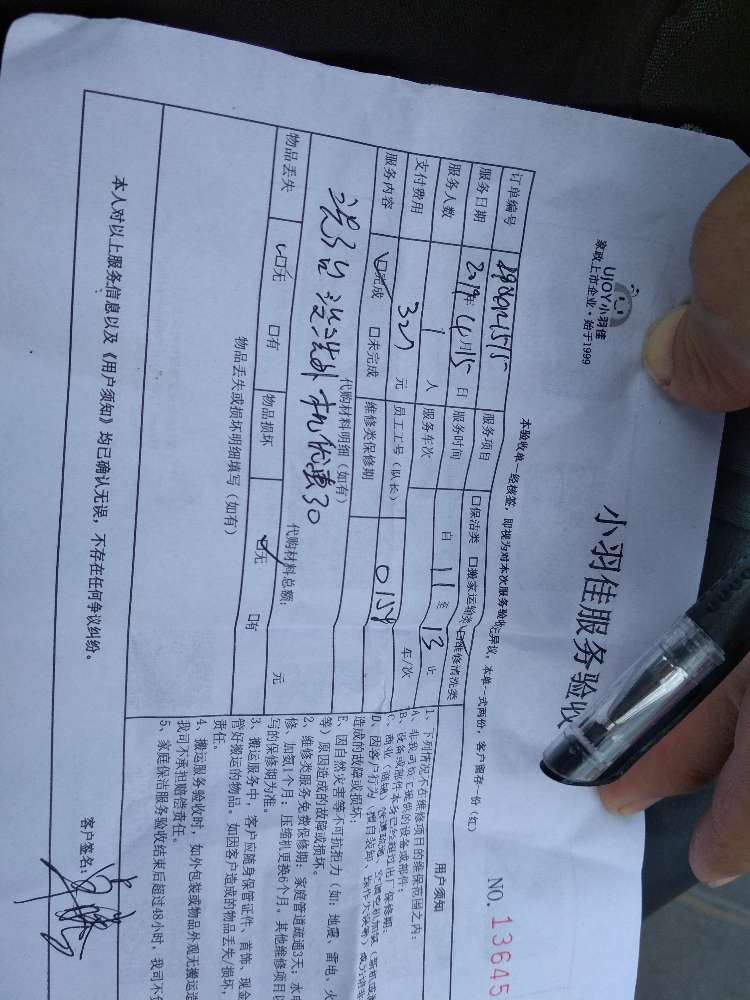 UJOY小羽佳
家政上市企业·始于1999
小羽佳服务验收
NO. 13645
本验收单一经核签，即视为对本次服务验收无异议，本单一式两份，客户留存一份（红）
订单编号
服务项目 □保洁类 □搬家运输类 ☑维修清洗类
服务日期 2019年4月15日 服务时间 自 11 至 13 止
服务人数 1 人 服务车次 车/次
支付费用 327 元 员工工号（队长） 0159
服务内容 ☑完成 □未完成 维修类保修期
代购材料明细（如有）
没洗外机优惠30
代购材料总额： 元
物品丢失 ☑无 □有 物品损坏 ☑无 □有
物品丢失或损坏明细填写（如有）
本人对以上服务信息以及《用户须知》均已确认无误，不存在任何争议纠纷。
用户须知
1、下列情况不在维修项目的维保范围之内：
A、非我司员工报修的设备或部件；
B、设备或部件本身已经超过出厂保修期；
造成的故障或损坏；
E、因自然灾害等不可抗拒力（如：地震、雷电、火
等）原因造成的故障或损坏。
2、维修类服务免费保修期：家庭管道疏通3天；水电
修、加氟1个月；压缩机更换6个月。其他维修项目以
写的保修期为准。
3、搬运服务中，客户应随身保管证件、首饰、现金
管好搬运的物品。如因客户造成的物品丢失/损坏，
责任。
4、搬运服务验收时，如外包装或物品外观无搬运造
我司不承担赔偿责任。
5、家庭保洁服务验收结束后超过48小时，我司不
客户签名：